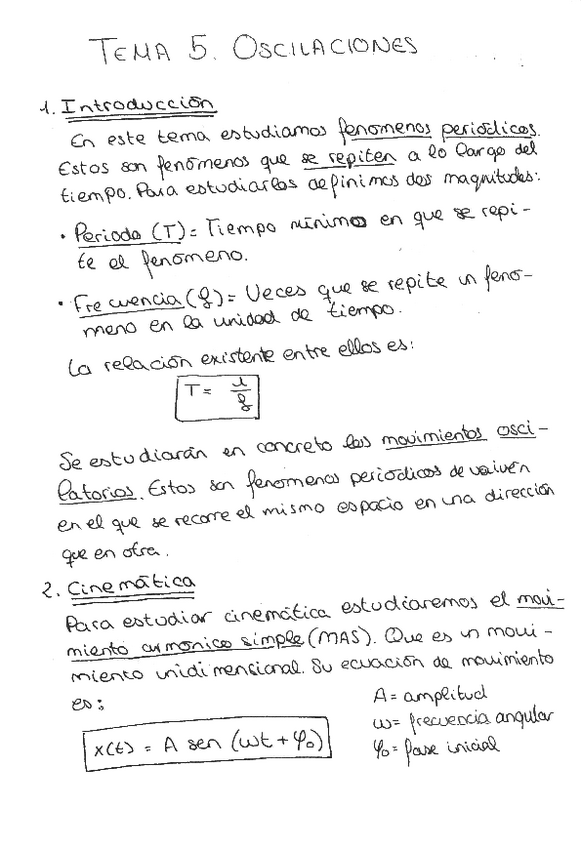 TEMA 5. OSCILACIONES
1. Introducción
En este tema estudiamos fenómenos periódicos.
Estos son fenómenos que se repiten a lo largo del
tiempo. Para estudiarlos definimos dos magnitudes:
· Periodo (T) = Tiempo mínimo en que se repi-
te el fenómeno.
· Frecuencia (f) = Veces que se repite un fenó-
meno en la unidad de tiempo.
La relación existente entre ellos es:
T = 1/f
Se estudiarán en concreto los movimientos osci-
latorios. Estos son fenómenos periódicos de vaivén
en el que se recorre el mismo espacio en una dirección
que en otra.
2. Cinemática
Para estudiar cinemática estudiaremos el movi-
miento armónico simple (MAS). Que es un movi-
miento unidimensional. Su ecuación de movimiento
es:
A = amplitud
ω = frecuencia angular
φ₀ = fase inicial
x(t) = A sen (ωt + φ₀)